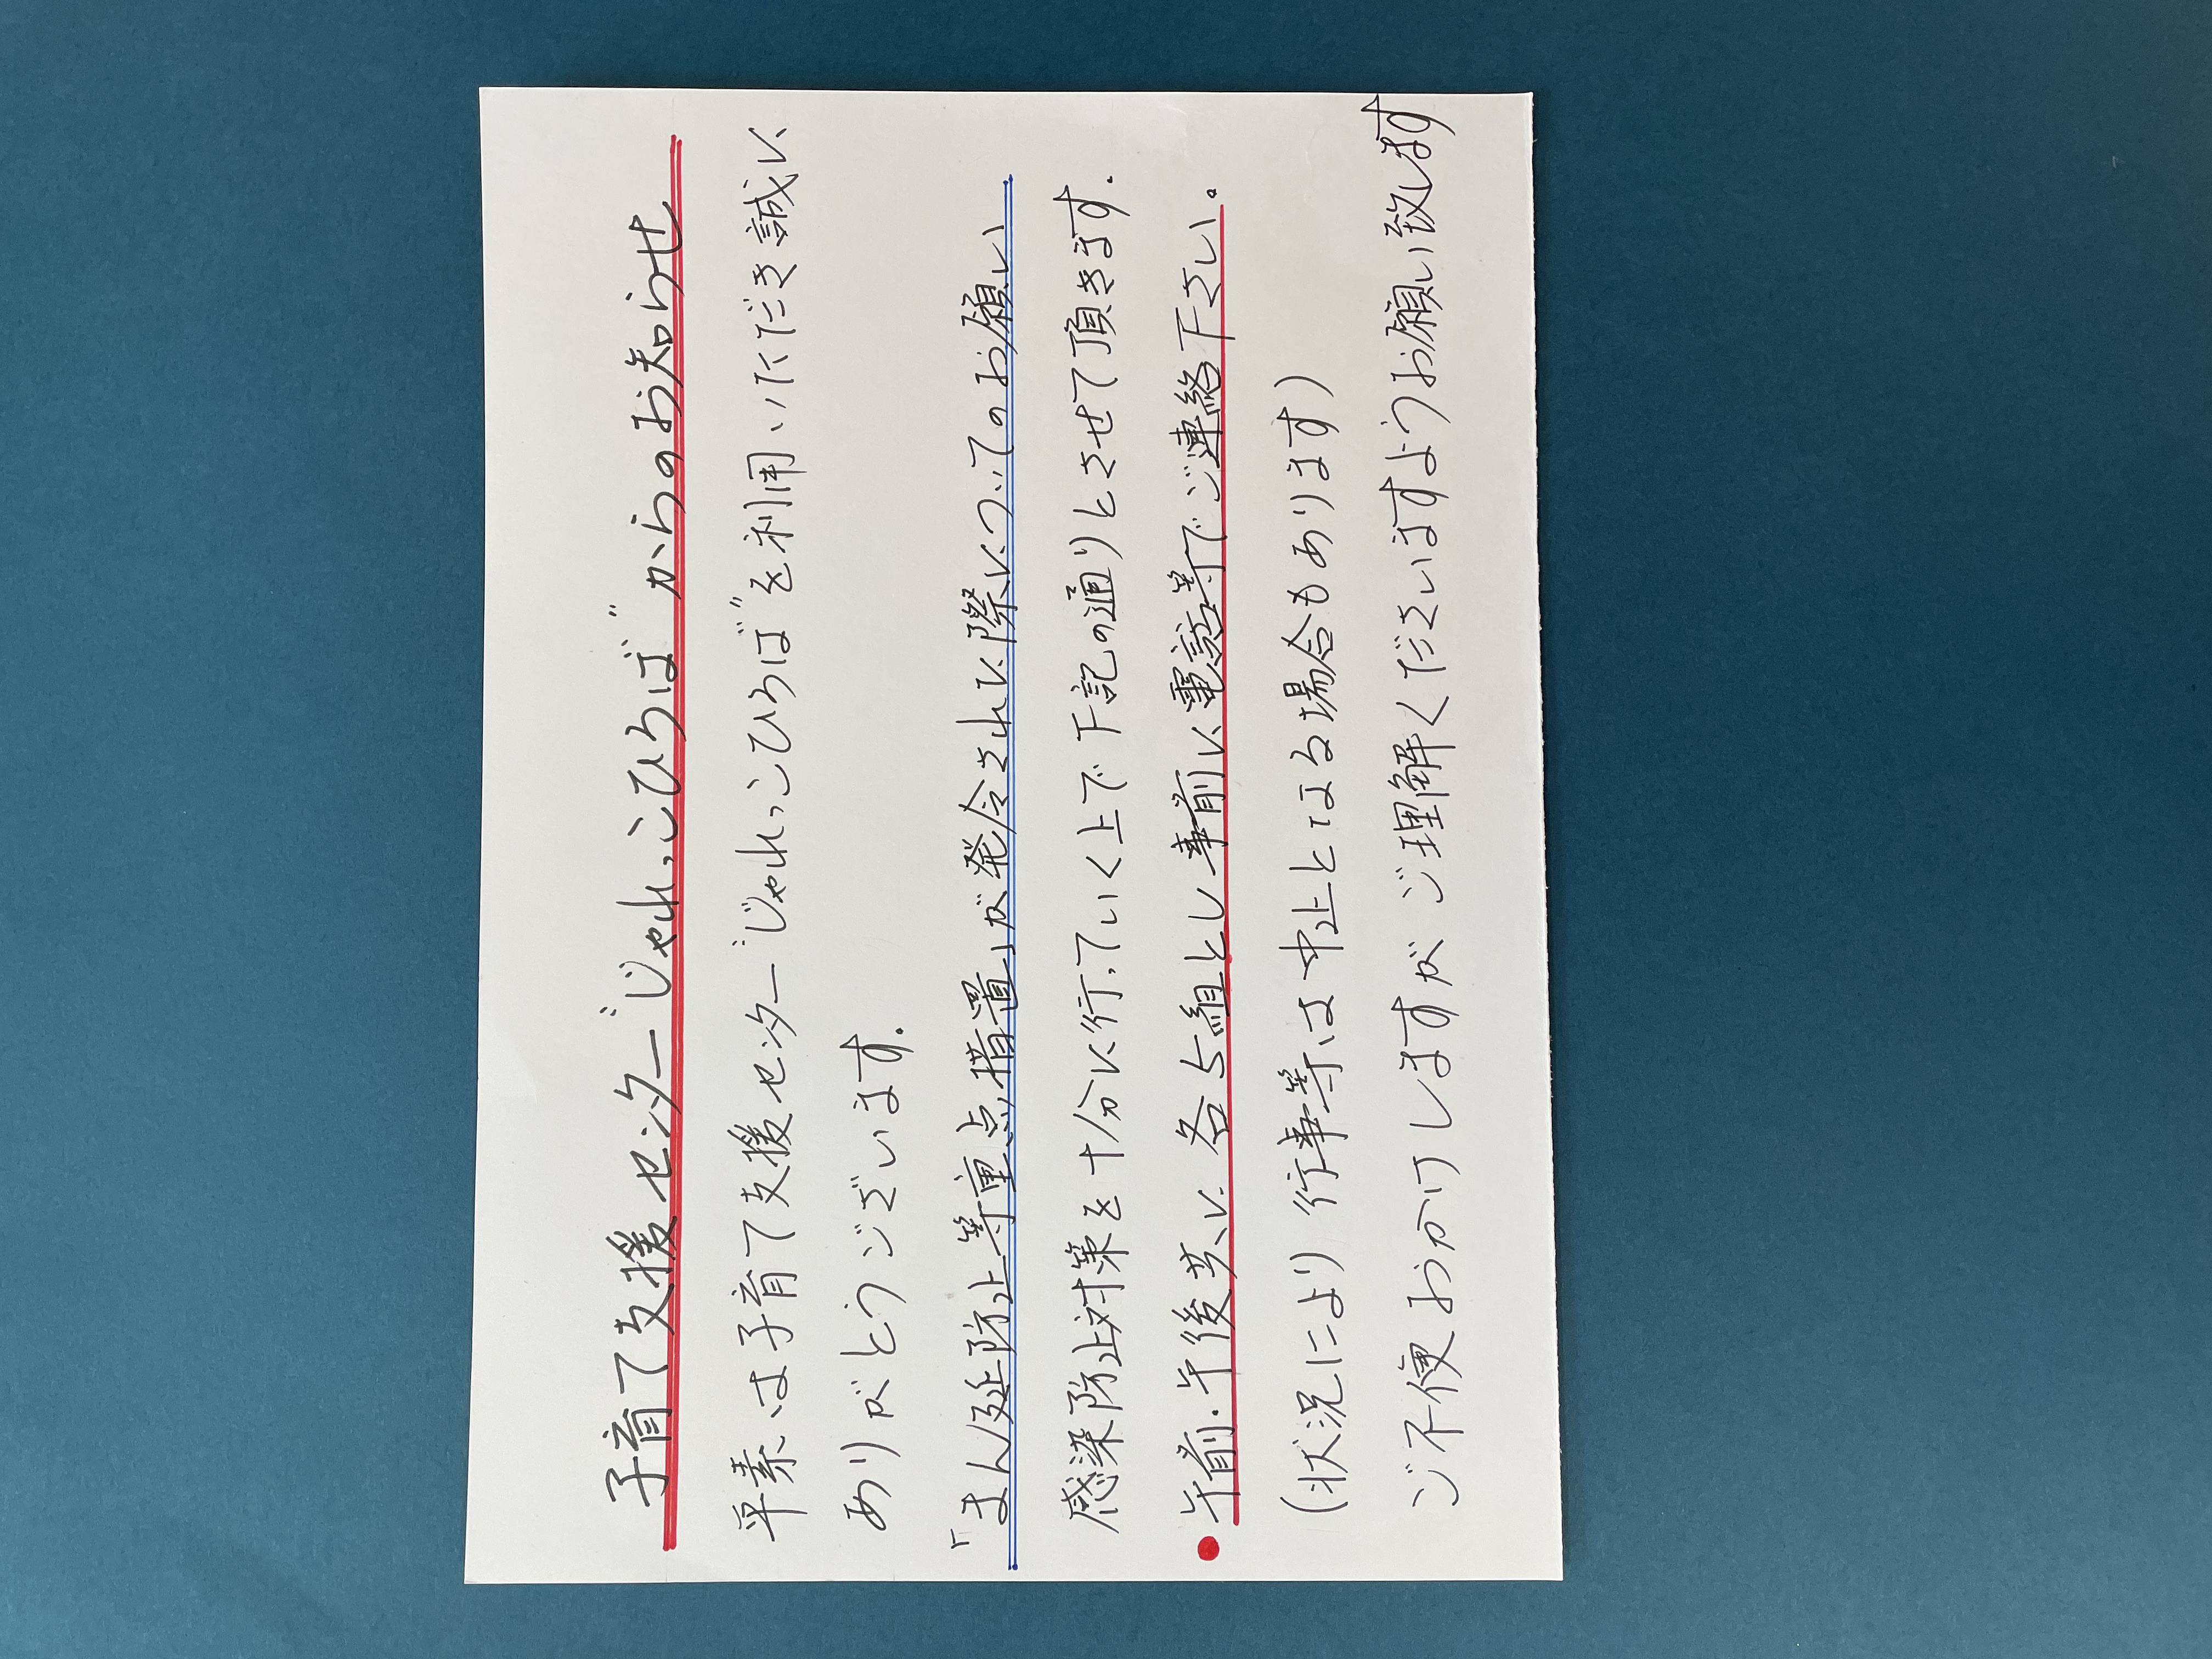 子育て支援センター"じゃれっこひろば"からのお知らせ
平素は子育て支援センター"じゃれっこひろば"を利用いただき誠に
ありがとうございます.
「まん延防止等重点措置」が発令された際についてのお願い
感染防止対策を十分に行っていく上で下記の通りとさせて頂きます.
●午前.午後共に各5組とし事前に電話等でご連絡下さい。
(状況により行事等は中止となる場合もあります)
ご不便おかけしますがご理解くださいますようお願い致します